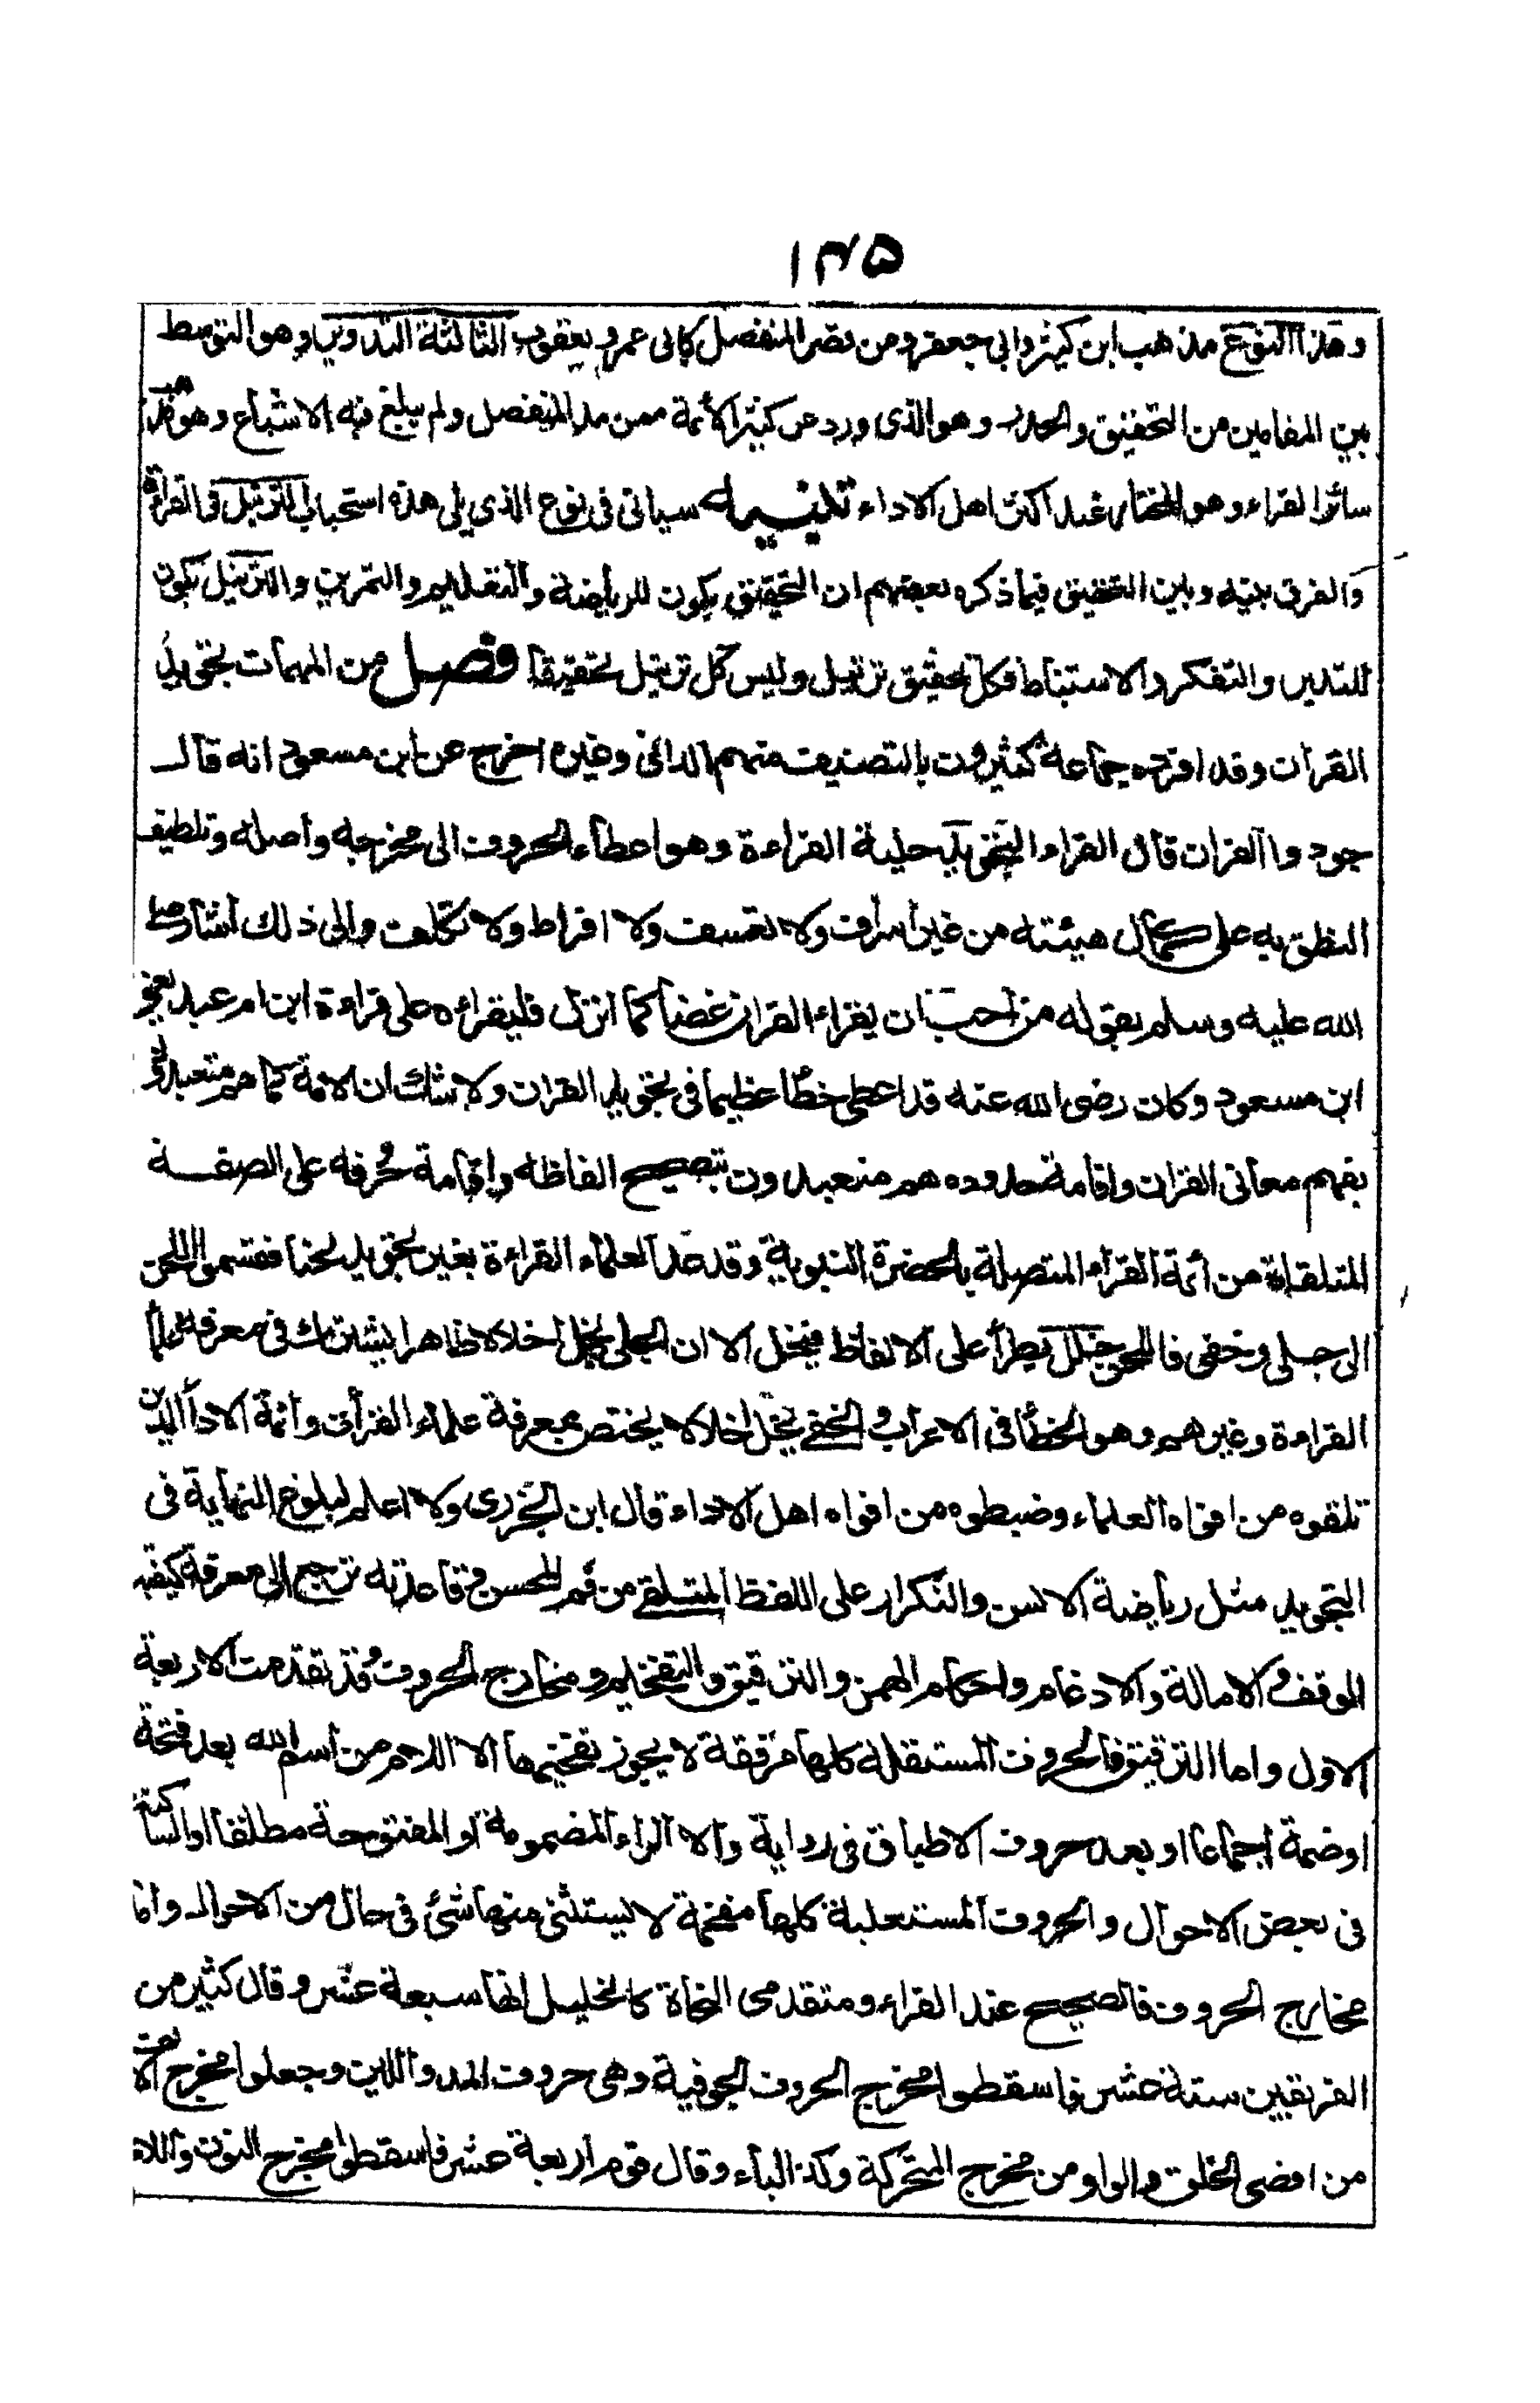 ١٣٥
وهذا النوع مذهب ابن كثير وابي جعفر ومن قصر المنفصل كابى عمرو ويعقوب الثالثة التدوير وهو التوسط
بين المقامين من التحقيق والحدر وهو الذى ورد عن كثير الأئمة ممن مد المنفصل ولم يبلغ فيه الاشباع وهو مذهب
سائر القراء وهو المختار عند اكثر اهل الاداء تنبيه سياتى فى نوع الذي يلى هذه استحباب الترتيل فى القراءة
والفرق بينه وبين التحقيق فيما ذكره بعضهم ان التحقيق يكون للرياضة والتعليم والتمرين والترتيل يكون
للتدبر والتفكر والاستنباط فكل تحقيق ترتيل وليس كل ترتيل تحقيقا فصل من المهمات تجويد
القرآن وقد افرده جماعة كثيرون بالتصنيف منهم الدانى وغيره اخرج عن ابن مسعود انه قال
جودوا القران قال القراء التجويد حلية القراءة وهو اعطاء الحروف الى مخرجه واصله وتلطيف
النطق به على كمال هيئته من غير اسراف ولا تعسف ولا افراط ولا تكلف والى ذلك اشار صلى
الله عليه وسلم بقوله من احب ان يقراء القران غضا كما انزل فليقراءه على قراءة ابن ام عبد يعنى
ابن مسعود وكان رضى الله عنه قد اعطى خطأ عظيما فى تجويد القران ولا شك ان الامة كما هم متعبدون
بفهم معانى القران واقامة حدوده هم متعبدون بتصحيح الفاظه واقامة حروفه على الصفة
المتلقاة من أئمة القراء المتصلة بالحضرة النبوية وقد عد العلماء القراءة بغير تجويد لحنا فقسموا اللحن
الى جلى وخفى فاللحن خلل يطرأ على الالفاظ فيخل الا ان الجلى يخل اخلالا ظاهرا يشترك فى معرفة علماء
القراءة وغيرهم وهو الخطأ فى الاعراب والخفى يخل اخلالا يختص بمعرفة علماء القرأت وائمة الاداء الذين
تلقوه من افواه العلماء وضبطوه من افواه اهل الاداء قال ابن الجزرى ولا اعلم لبلوغ النهاية فى
التجويد مثل رياضة الالسن والتكرار على اللفظ المتلقى من فم المحسن وقاعدته ترجع الى معرفة كيفية
الوقف والامالة والادغام واحكام الهمز والترقيق والتفخيم ومخارج الحروف وقد تقدمت الاربعة
الاول واما الترقيق فالحروف المستفلة كلها مرققة لا يجوز تفخيمها الا اللام من اسم الله بعد فتحة
او ضمة اجماعا او بعد حروف الاطباق فى رواية والا الراء المضمومة او المفتوحة مطلقا او الساكنة
فى بعض الاحوال والحروف المستعلية كلها مفخمة لا يستثنى منها شئ فى حال من الاحوال واما
مخارج الحروف فالصحيح عند القراء ومتقدمى النحاة كالخليل انها سبعة عشر وقال كثير من
الفريقين ستة عشر فاسقطوا مخرج الحروف الجوفية وهى حروف المد واللين وجعلوا مخرج الالف
من اقصى الحلق والواو من مخرج المتحركة وكذ الياء وقال قوم اربعة عشر فاسقطوا مخرج النون واللام